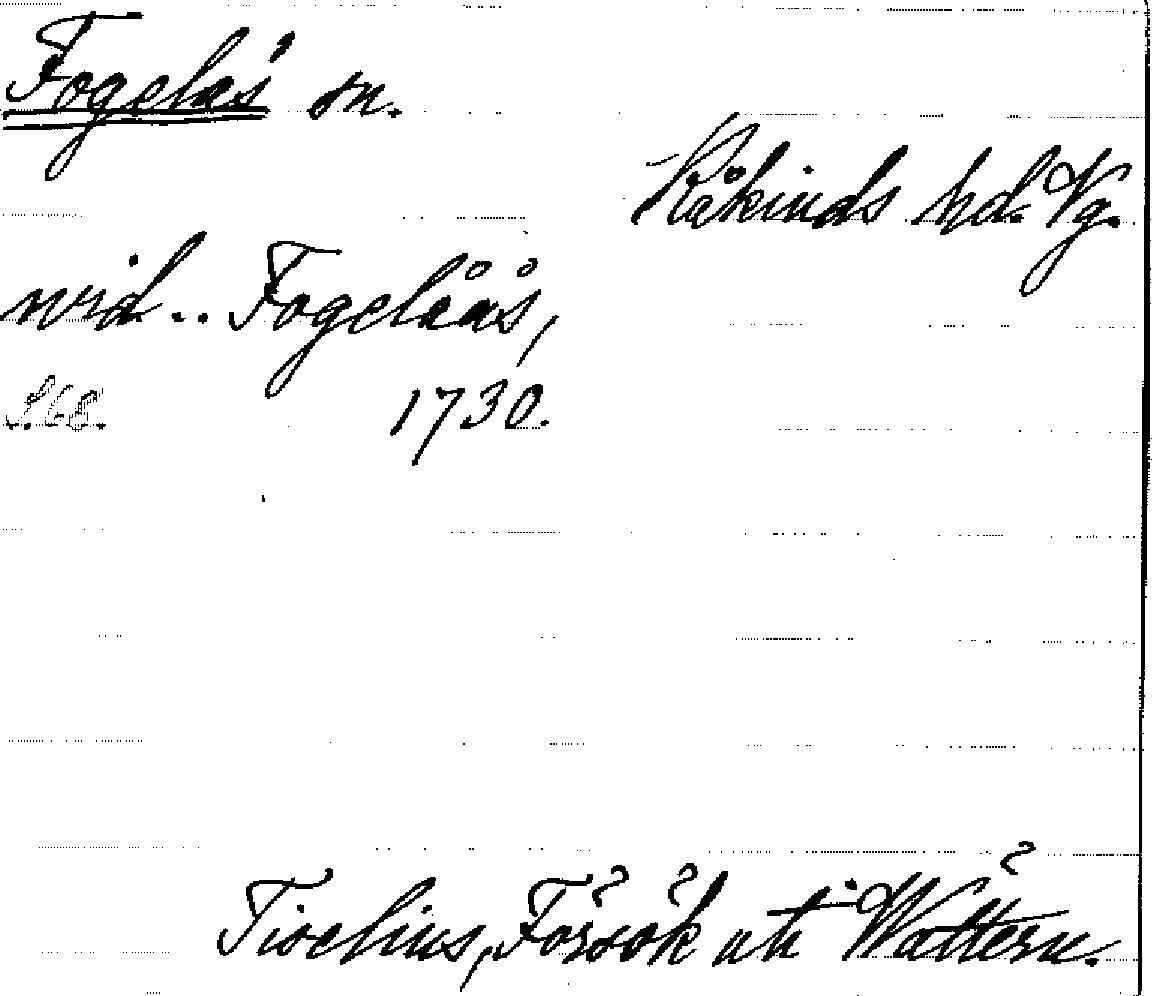 Fogelås sn.
Kåkinds hd. Vg.
wid.. Fogelåås,
S. 68. 1730.
Tiselius, Försök uti Wättern.